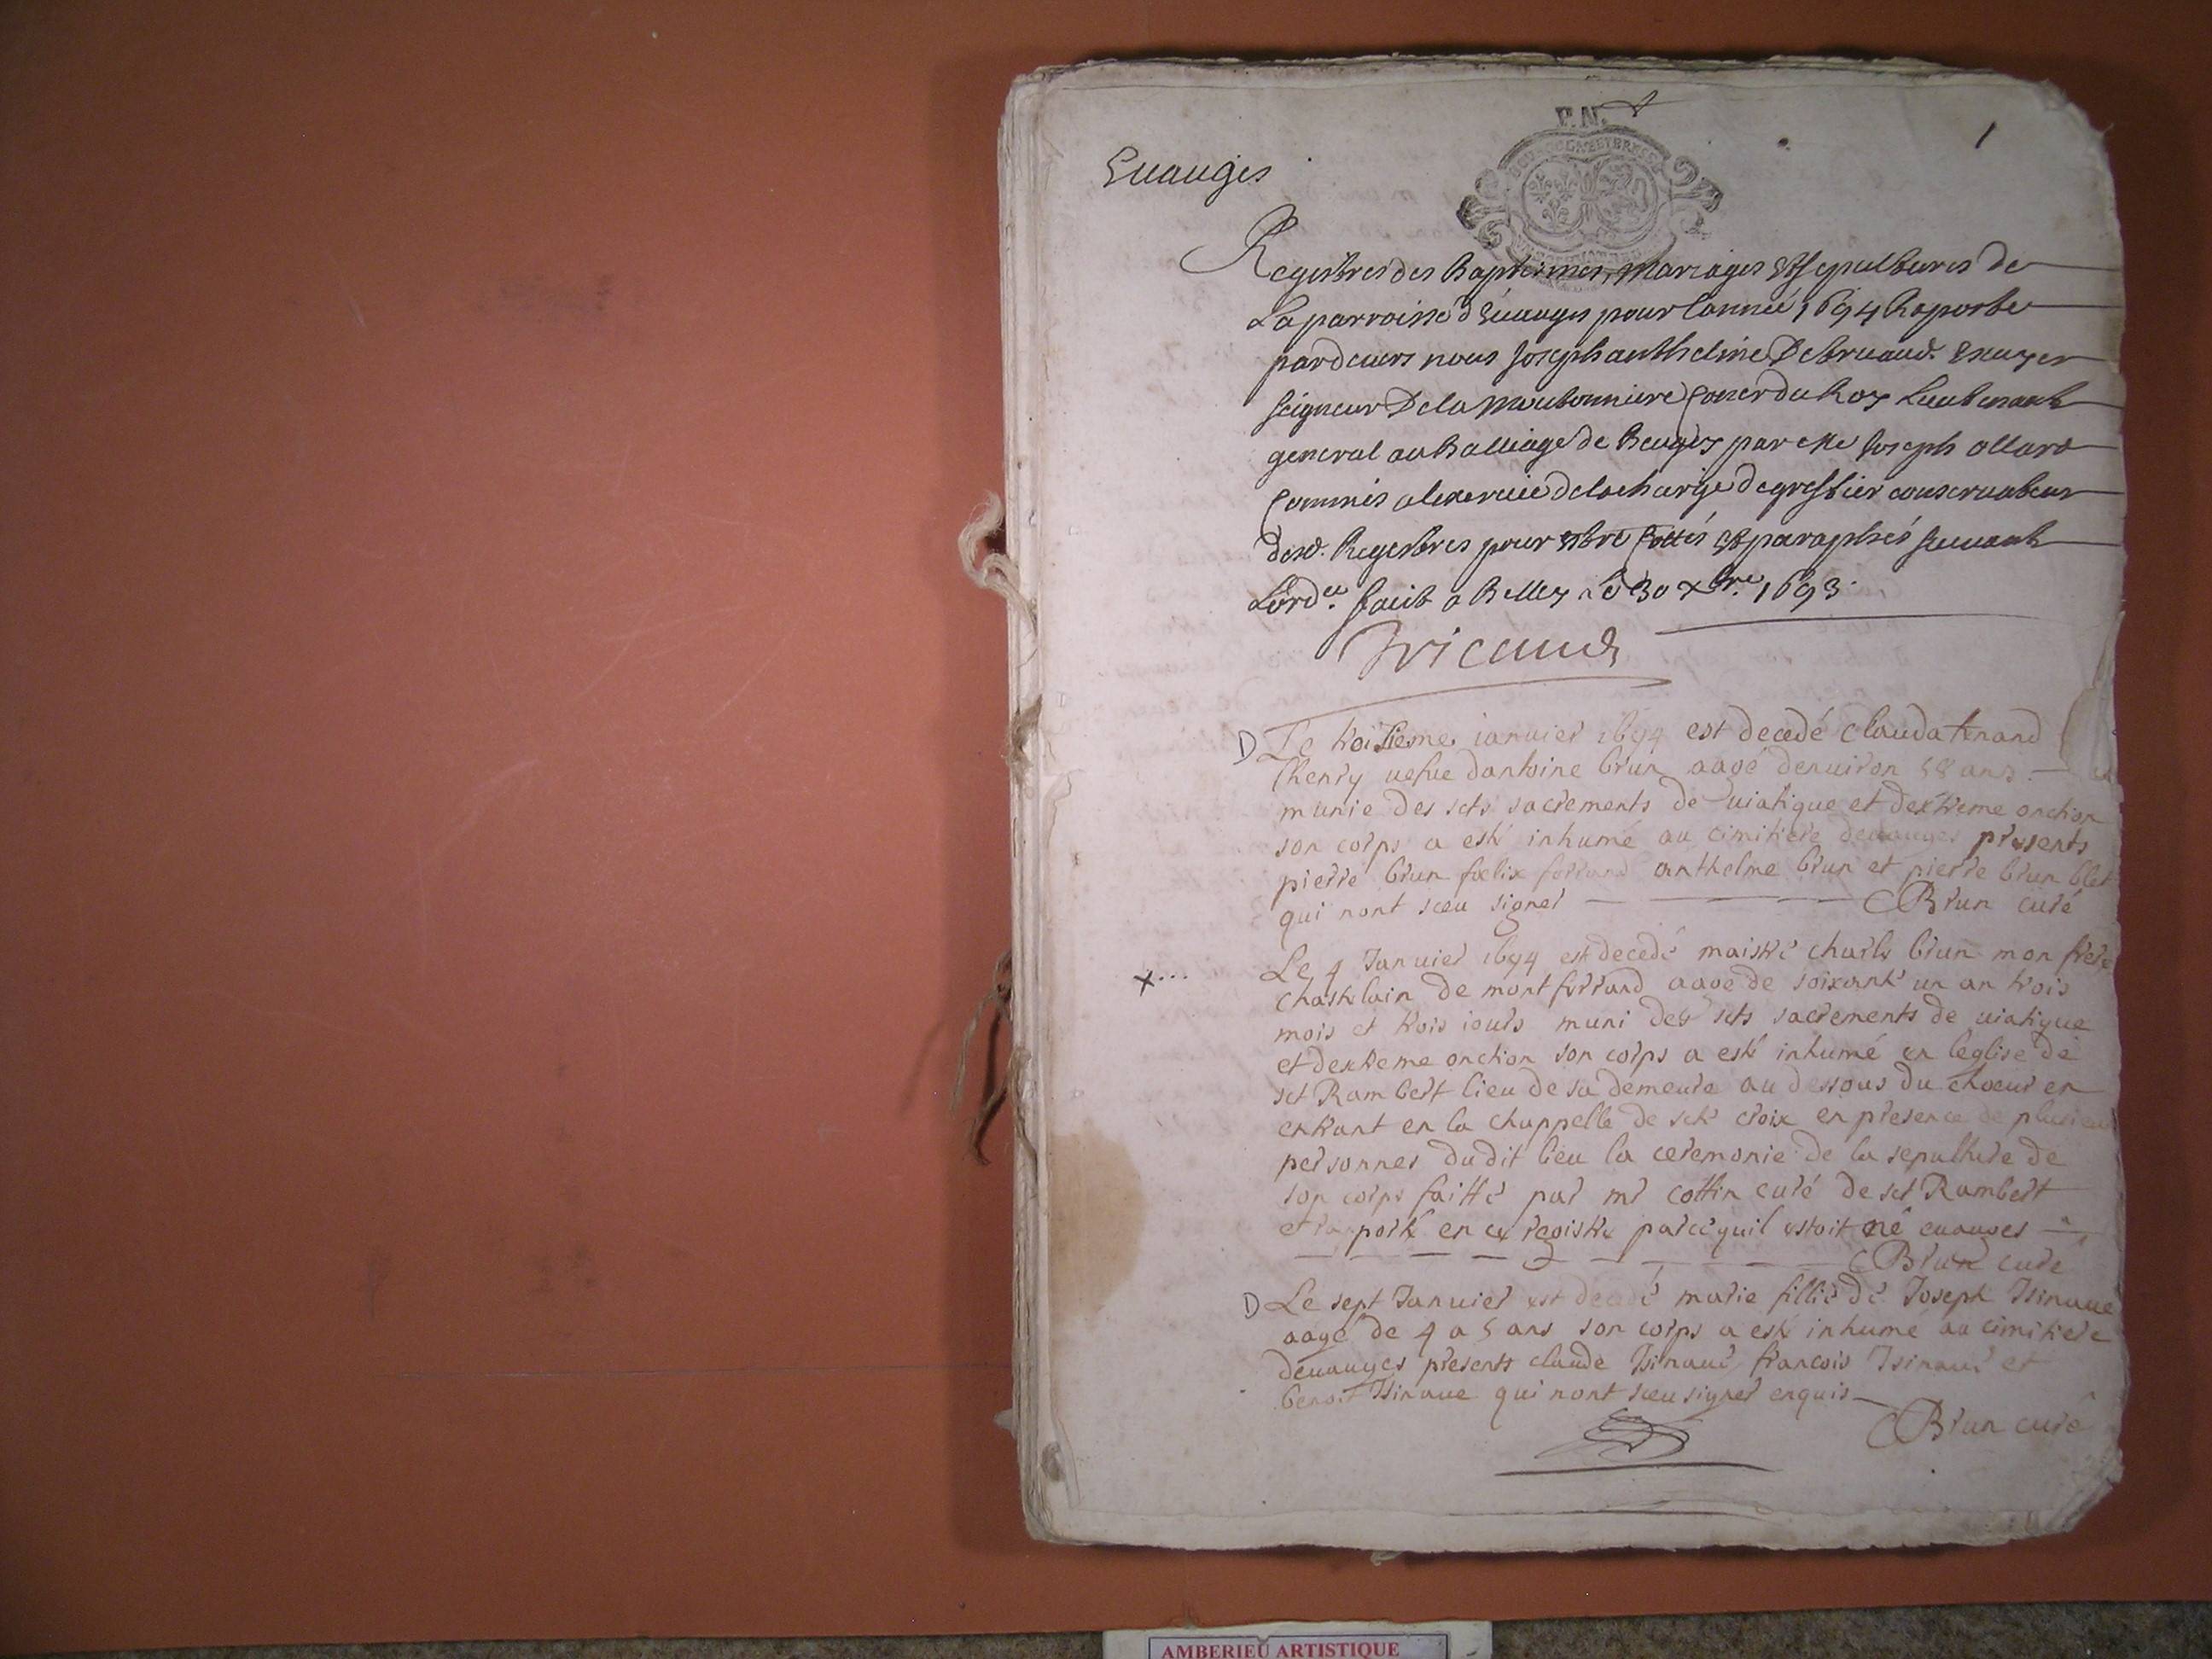 P.N.
1
Euauges
BOURGOGNE ET BRESSE
Registres des Baptesmes, Mariages et sepultures de
La parroisse d'Euauges pour l'année 1694 Raporte
pardeuers nous Joseph anthelme Escuyer
seigneur De la Moutonniere Coner du Roy Lieutenant
general au Balliage de Beugey par Me Joseph allard
Commis a lexercice de la charge de greffier conseruateur
desd. Registres pour estre Cottés et paraphés suiuant
Lordce. faict a Belley le 30 xbre. 1693.
Tricaud
D Le troisieme ianuier 1694 est decedé clauda tenand
Chenry uefue dantoine brun aagé denuiron 58 ans
munie des scts sacrements de uiatique et dextreme onction
son corps a esté inhumé au cimitiere deuauges presents
pierre brun foelix ferrand anthelme brun et pierre brun blet
qui nont sceu signer Brun curé
x... Le 4 Januier 1694 est decedé maistre charls brun mon frere
chastelain de montferrand aagé de soixante un an trois
mois et trois iours muni des scts sacrements de uiatique
et dextreme onction son corps a esté inhumé en leglise de
sct Rambert lieu de sa demeure au dessous du choeur en
entrant en la chappelle de scte croix en presence de plusieurs
personnes dudit lieu la ceremonie de la sepulture de
son corps faitte par mr cottin curé de sct Rambert
et rapporté en ce registre parcequil estoit né euauges
Brun curé
D Le sept Januier est decedé marie fillie de Joseph Isinaue
aagé de 4 a 5 ans son corps a esté inhumé au cimitiere
deuauges presents claude Isinaue francois Isinaue et
benoit Isinaue qui nont sceu signer enquis
Brun curé
AMBERIEU ARTISTIQUE